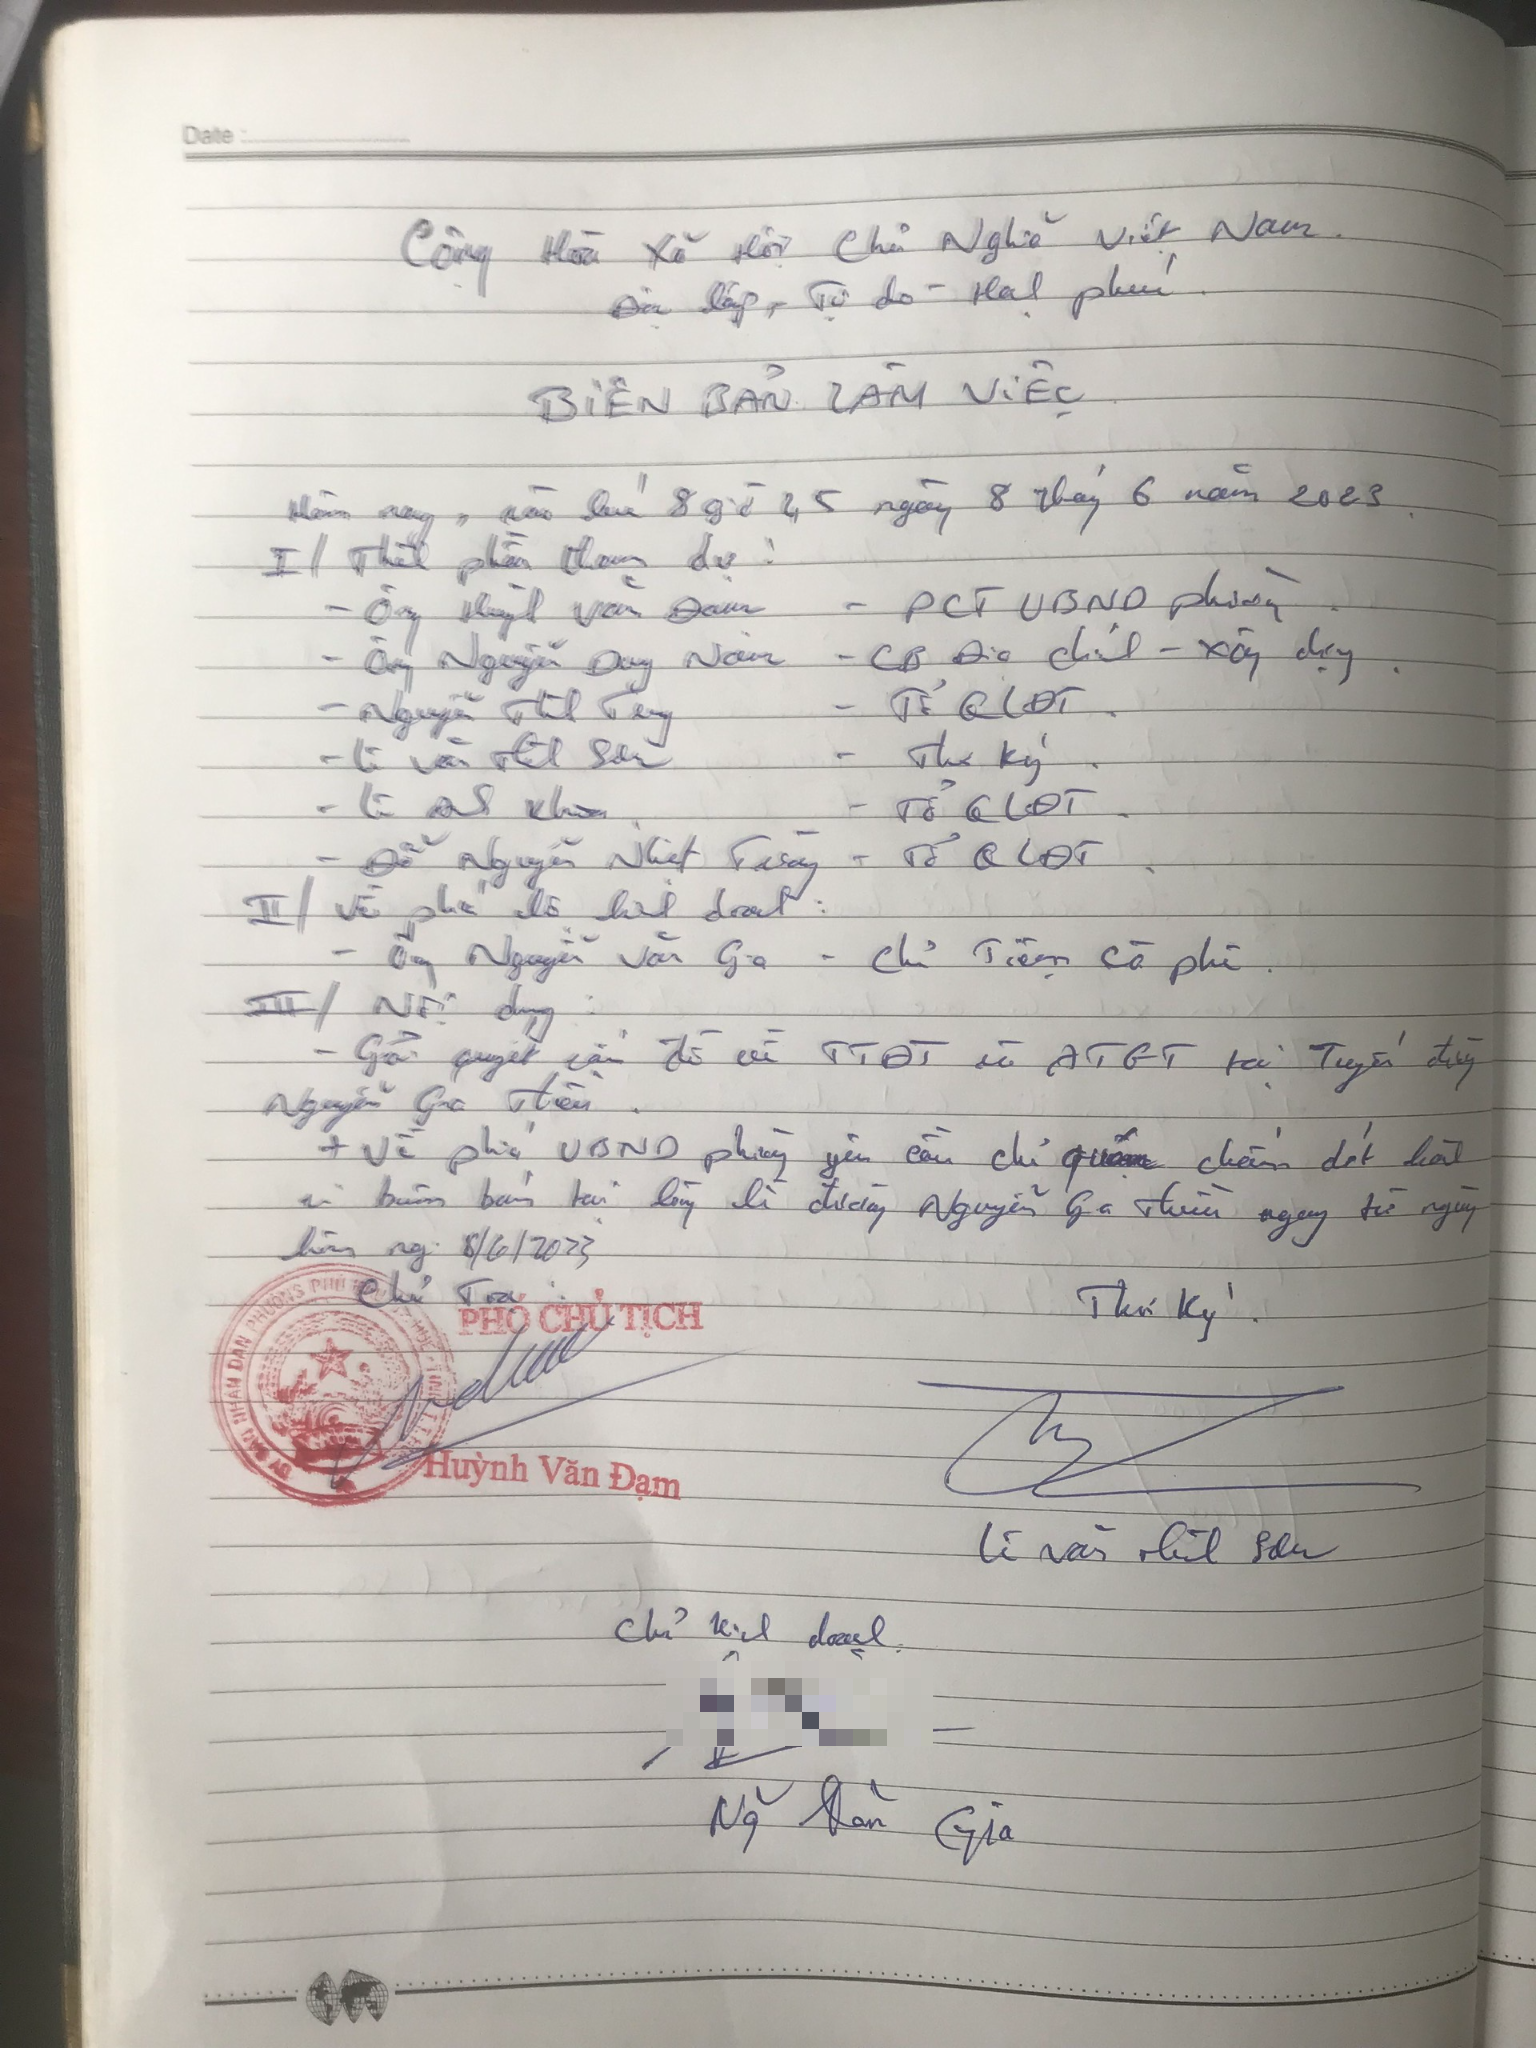 Date :
Cộng Hoà Xã Hội Chủ Nghĩa Việt Nam.
Độc lập, - Tự do - Hạnh phúc.
BIÊN BẢN LÀM VIỆC
Hôm nay, vào lúc 8 giờ 45 ngày 8 tháng 6 năm 2023.
I/ Thành phần tham dự :
- Ông Huỳnh Văn Đạm - PCT UBND phường.
- Ông Nguyễn Duy Năm - CB Địa chính - xây dựng.
- Nguyễn Thành - Tổ QLĐT.
- Lê Văn Thành Sơn - Thư ký.
- Lê Khoa - Tổ QLĐT.
- Đỗ Nguyễn Nhật Trường - Tổ QLĐT.
II/ Về phía hộ kinh doanh :
- Ông Nguyễn Văn Gia - Chủ Tiệm cà phê.
III/ Nội dung :
- Giải quyết vấn đề về TTĐT và ATGT tại Tuyến đường
Nguyễn Gia Thiều.
+ Về phía UBND phường yêu cầu chủ quán chấm dứt hành
vi buôn bán tại lòng lề đường Nguyễn Gia Thiều ngay từ ngày
hôm nay 8/6/2023
Chủ Toạ :
Thư Ký.
PHÓ CHỦ TỊCH
ỦY BAN NHÂN DÂN PHƯỜNG PHÚ
Huỳnh Văn Đạm
Lê Văn Thành Sơn
Chủ kinh doanh.
Ng Văn Gia